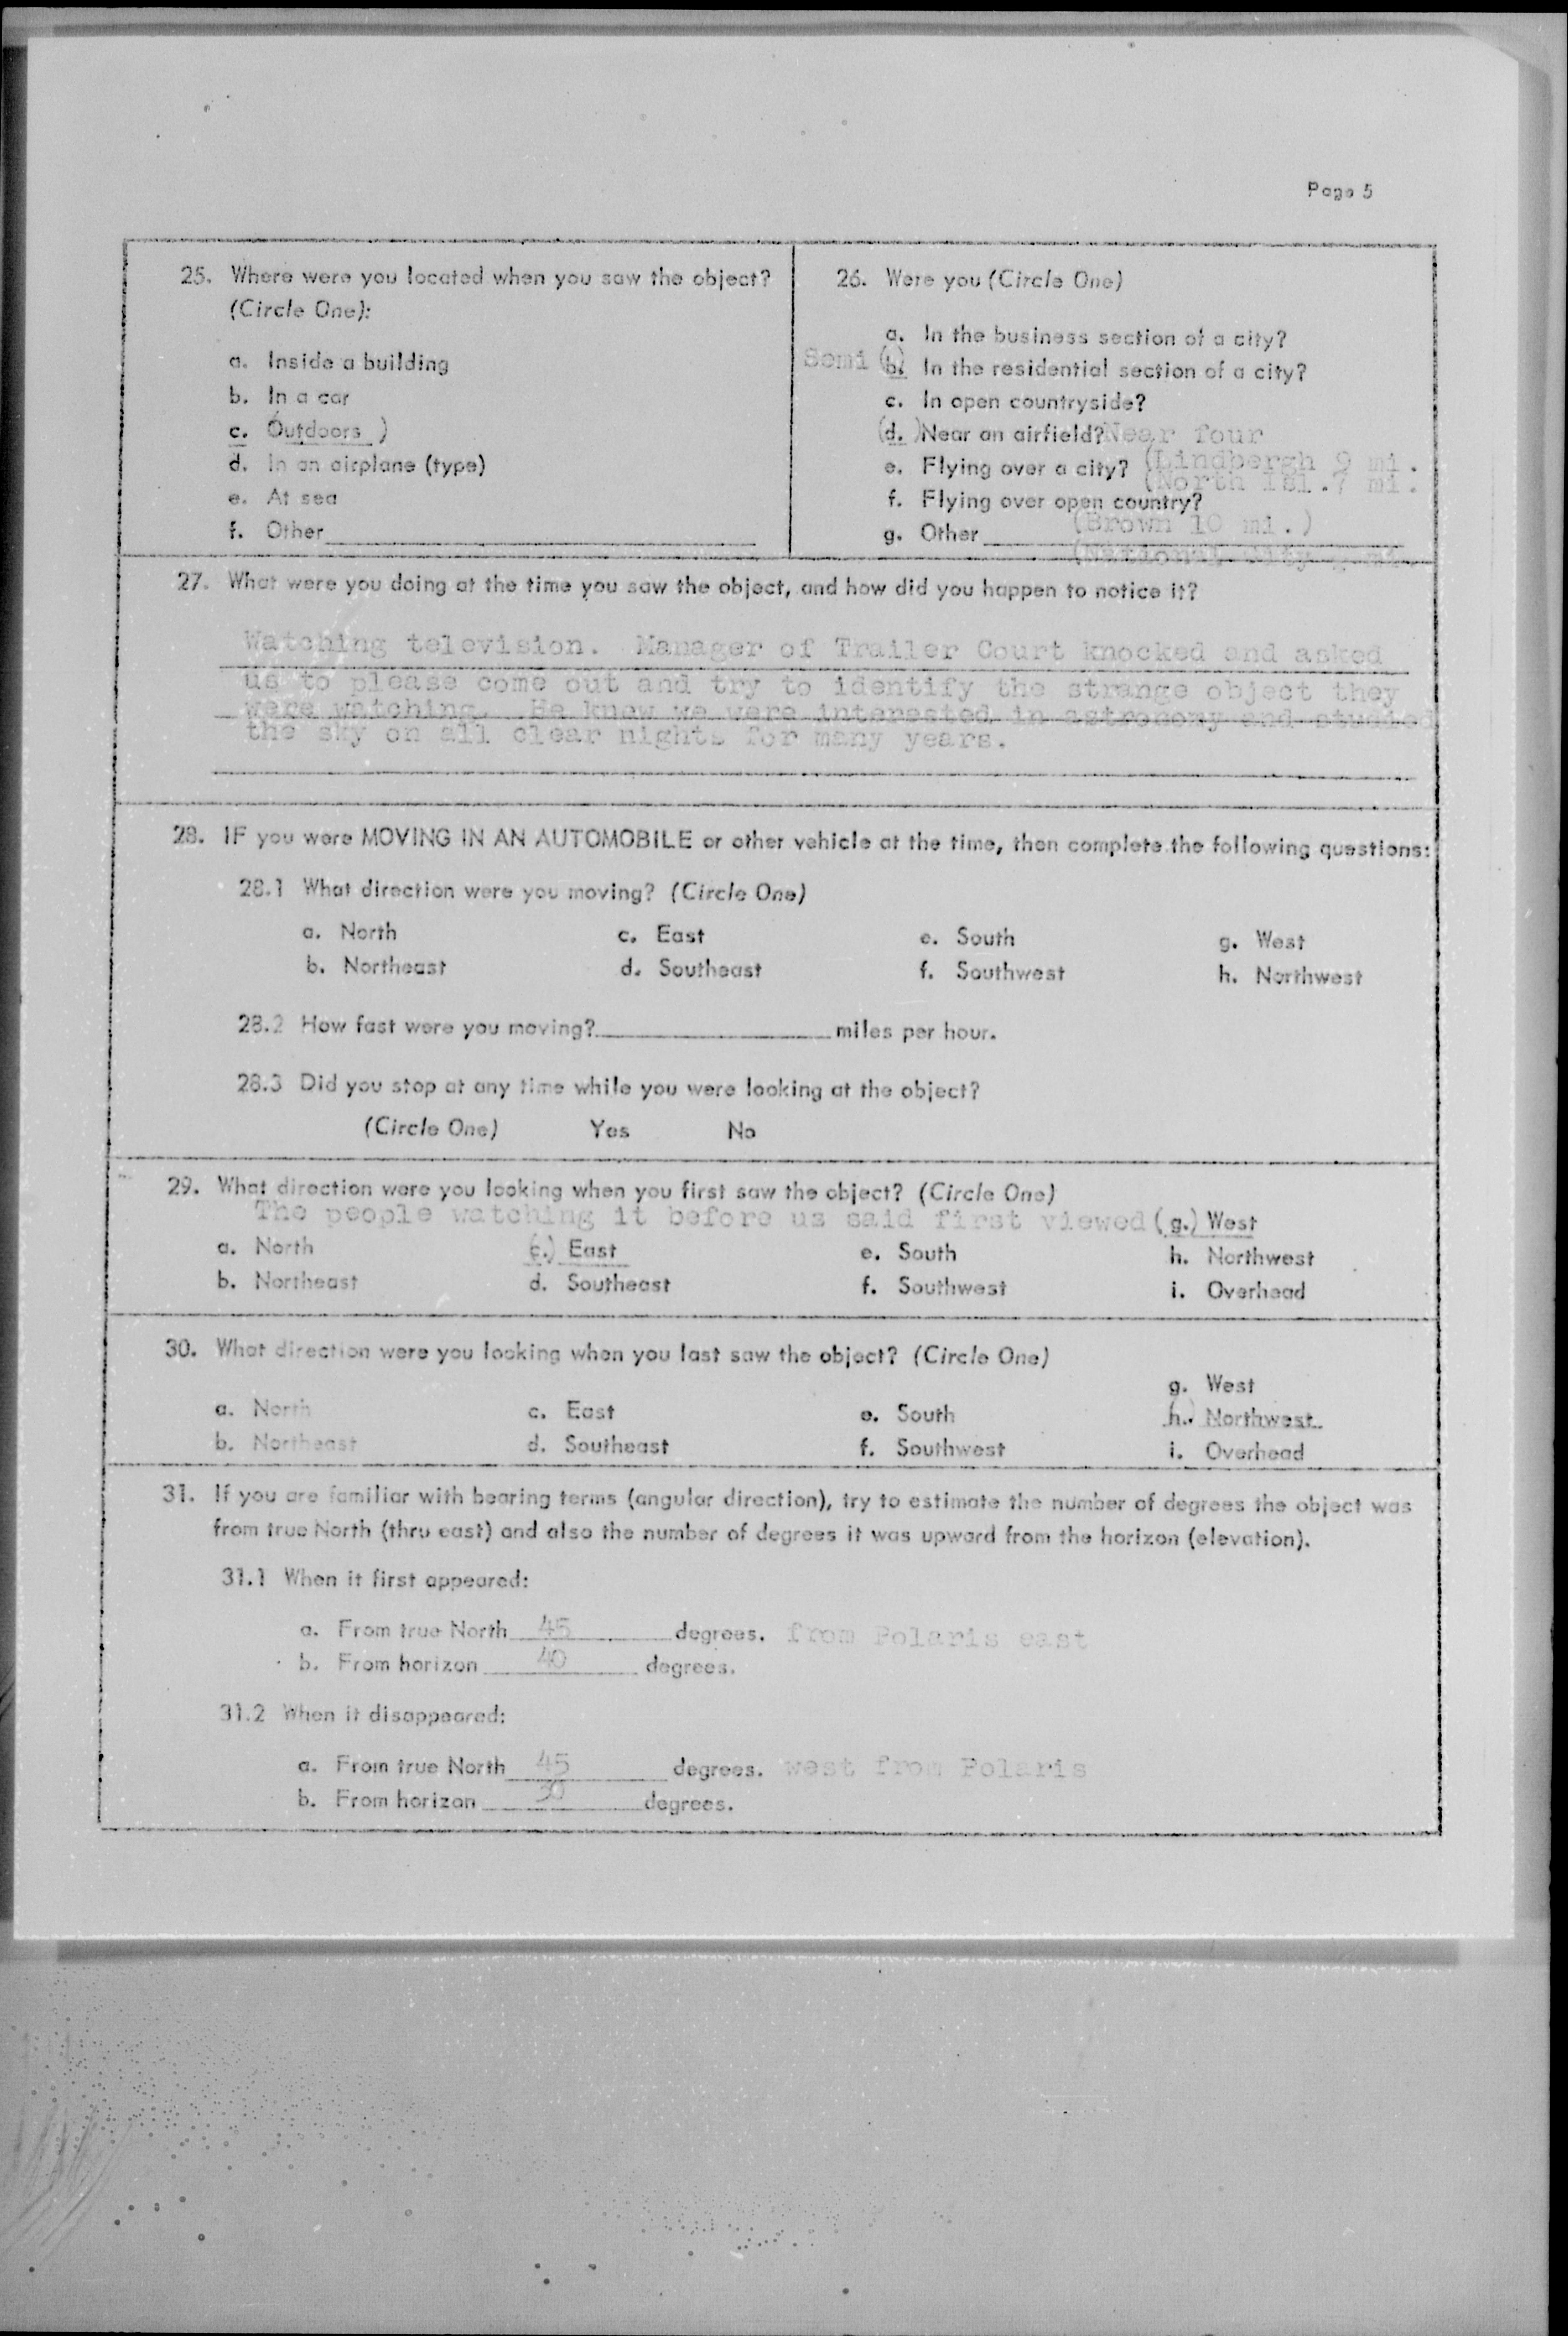 Page 5
25. Where were you located when you saw the object?
(Circle One):
a. Inside a building
b. In a car
c. Outdoors )
d. In an airplane (type)
e. At sea
f. Other
26. Were you (Circle One)
a. In the business section of a city?
Semi (b.) In the residential section of a city?
c. In open countryside?
(d. ) Near an airfield? Near four
e. Flying over a city? (Lindbergh 9 mi.
(North Isl. 7 mi.
f. Flying over open country?
(Brown 10 mi.)
g. Other
(National City mi.
27. What were you doing at the time you saw the object, and how did you happen to notice it?
Watching television. Manager of Trailer Court knocked and asked
us to please come out and try to identify the strange object they
were watching. He knew we were interested in astronomy and studied
the sky on all clear nights for many years.
28. IF you were MOVING IN AN AUTOMOBILE or other vehicle at the time, then complete the following questions:
28.1 What direction were you moving? (Circle One)
a. North c. East e. South g. West
b. Northeast d. Southeast f. Southwest h. Northwest
28.2 How fast were you moving? miles per hour.
28.3 Did you stop at any time while you were looking at the object?
(Circle One) Yes No
29. What direction were you looking when you first saw the object? (Circle One)
The people watching it before us said first viewed (g.) West
a. North (c.) East e. South h. Northwest
b. Northeast d. Southeast f. Southwest i. Overhead
30. What direction were you looking when you last saw the object? (Circle One)
g. West
a. North c. East e. South h. Northwest
b. Northeast d. Southeast f. Southwest i. Overhead
31. If you are familiar with bearing terms (angular direction), try to estimate the number of degrees the object was
from true North (thru east) and also the number of degrees it was upward from the horizon (elevation).
31.1 When it first appeared:
a. From true North 45 degrees. from Polaris east
b. From horizon 40 degrees.
31.2 When it disappeared:
a. From true North 45 degrees. west from Polaris
b. From horizon 30 degrees.